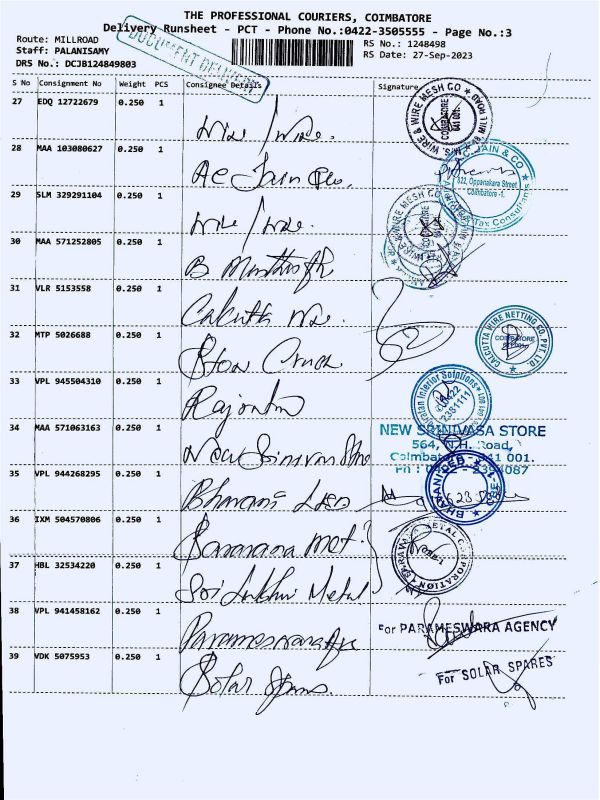 THE PROFESSIONAL COURIERS, COIMBATORE
Delivery Runsheet - PCT - Phone No.:0422-3505555 - Page No.:3
Route: MILLROAD
Staff: PALANISAMY
DRS No.: DCJB124849803
RS No.: 1248498
RS Date: 27-Sep-2023
DOCUMENT DELIVERY
S No Consignment No Weight PCS Consignee Details Signature
27 EDQ 12722679 0.250 1
Wire / Wire.
WIRE & WIRE MESH CO
COIMBATORE
641 001
28 MAA 103080627 0.250 1
JAIN & CO
622, Oppanakara Street
Coimbatore -1.
Tax Consultants
29 SLM 329291104 0.250 1
Wire / Wire.
WIRE MESH CO
30 MAA 571252805 0.250 1
31 VLR 5153558 0.250 1
Calcutta Wire.
32 MTP 5026688 0.250 1
CALCUTTA WIRE NETTING CO. PVT. LTD.
COIMBATORE
33 VPL 945504310 0.250 1
Interior Solutions
0422
2381111
34 MAA 571063163 0.250 1
New Srinivasa Store
NEW SRINIVASA STORE
564, N.H. Road,
Coimbatore - 641 001.
35 VPL 944268295 0.250 1
Bhavani
BHAVANI
36 IXM 504570806 0.250 1
METAL CORPORATION
37 HBL 32534220 0.250 1
Sri Lakshmi Metal
38 VPL 941458162 0.250 1
For PARAMESWARA AGENCY
39 VDK 5075953 0.250 1
Solar Spares
For SOLAR SPARES